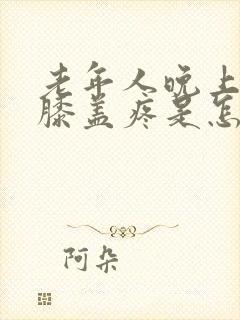 老年人晚上
膝盖疼是怎
阿朵